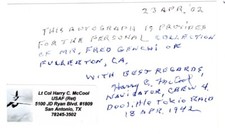 23 APR, 02
THIS AUTOGRAPH IS PROVIDED
FOR THE PERSONAL COLLECTION
OF MR. FRED OF
FULLERTON, CA.
WITH BEST REGARDS,
Harry C. McCool
NAVIGATOR, CREW 4
DOOLITTLE TOKYO RAID
18 APR 1942
Lt Col Harry C. McCool
USAF (Ret)
5100 JD Ryan Blvd. #1809
San Antonio, TX
78245-3502